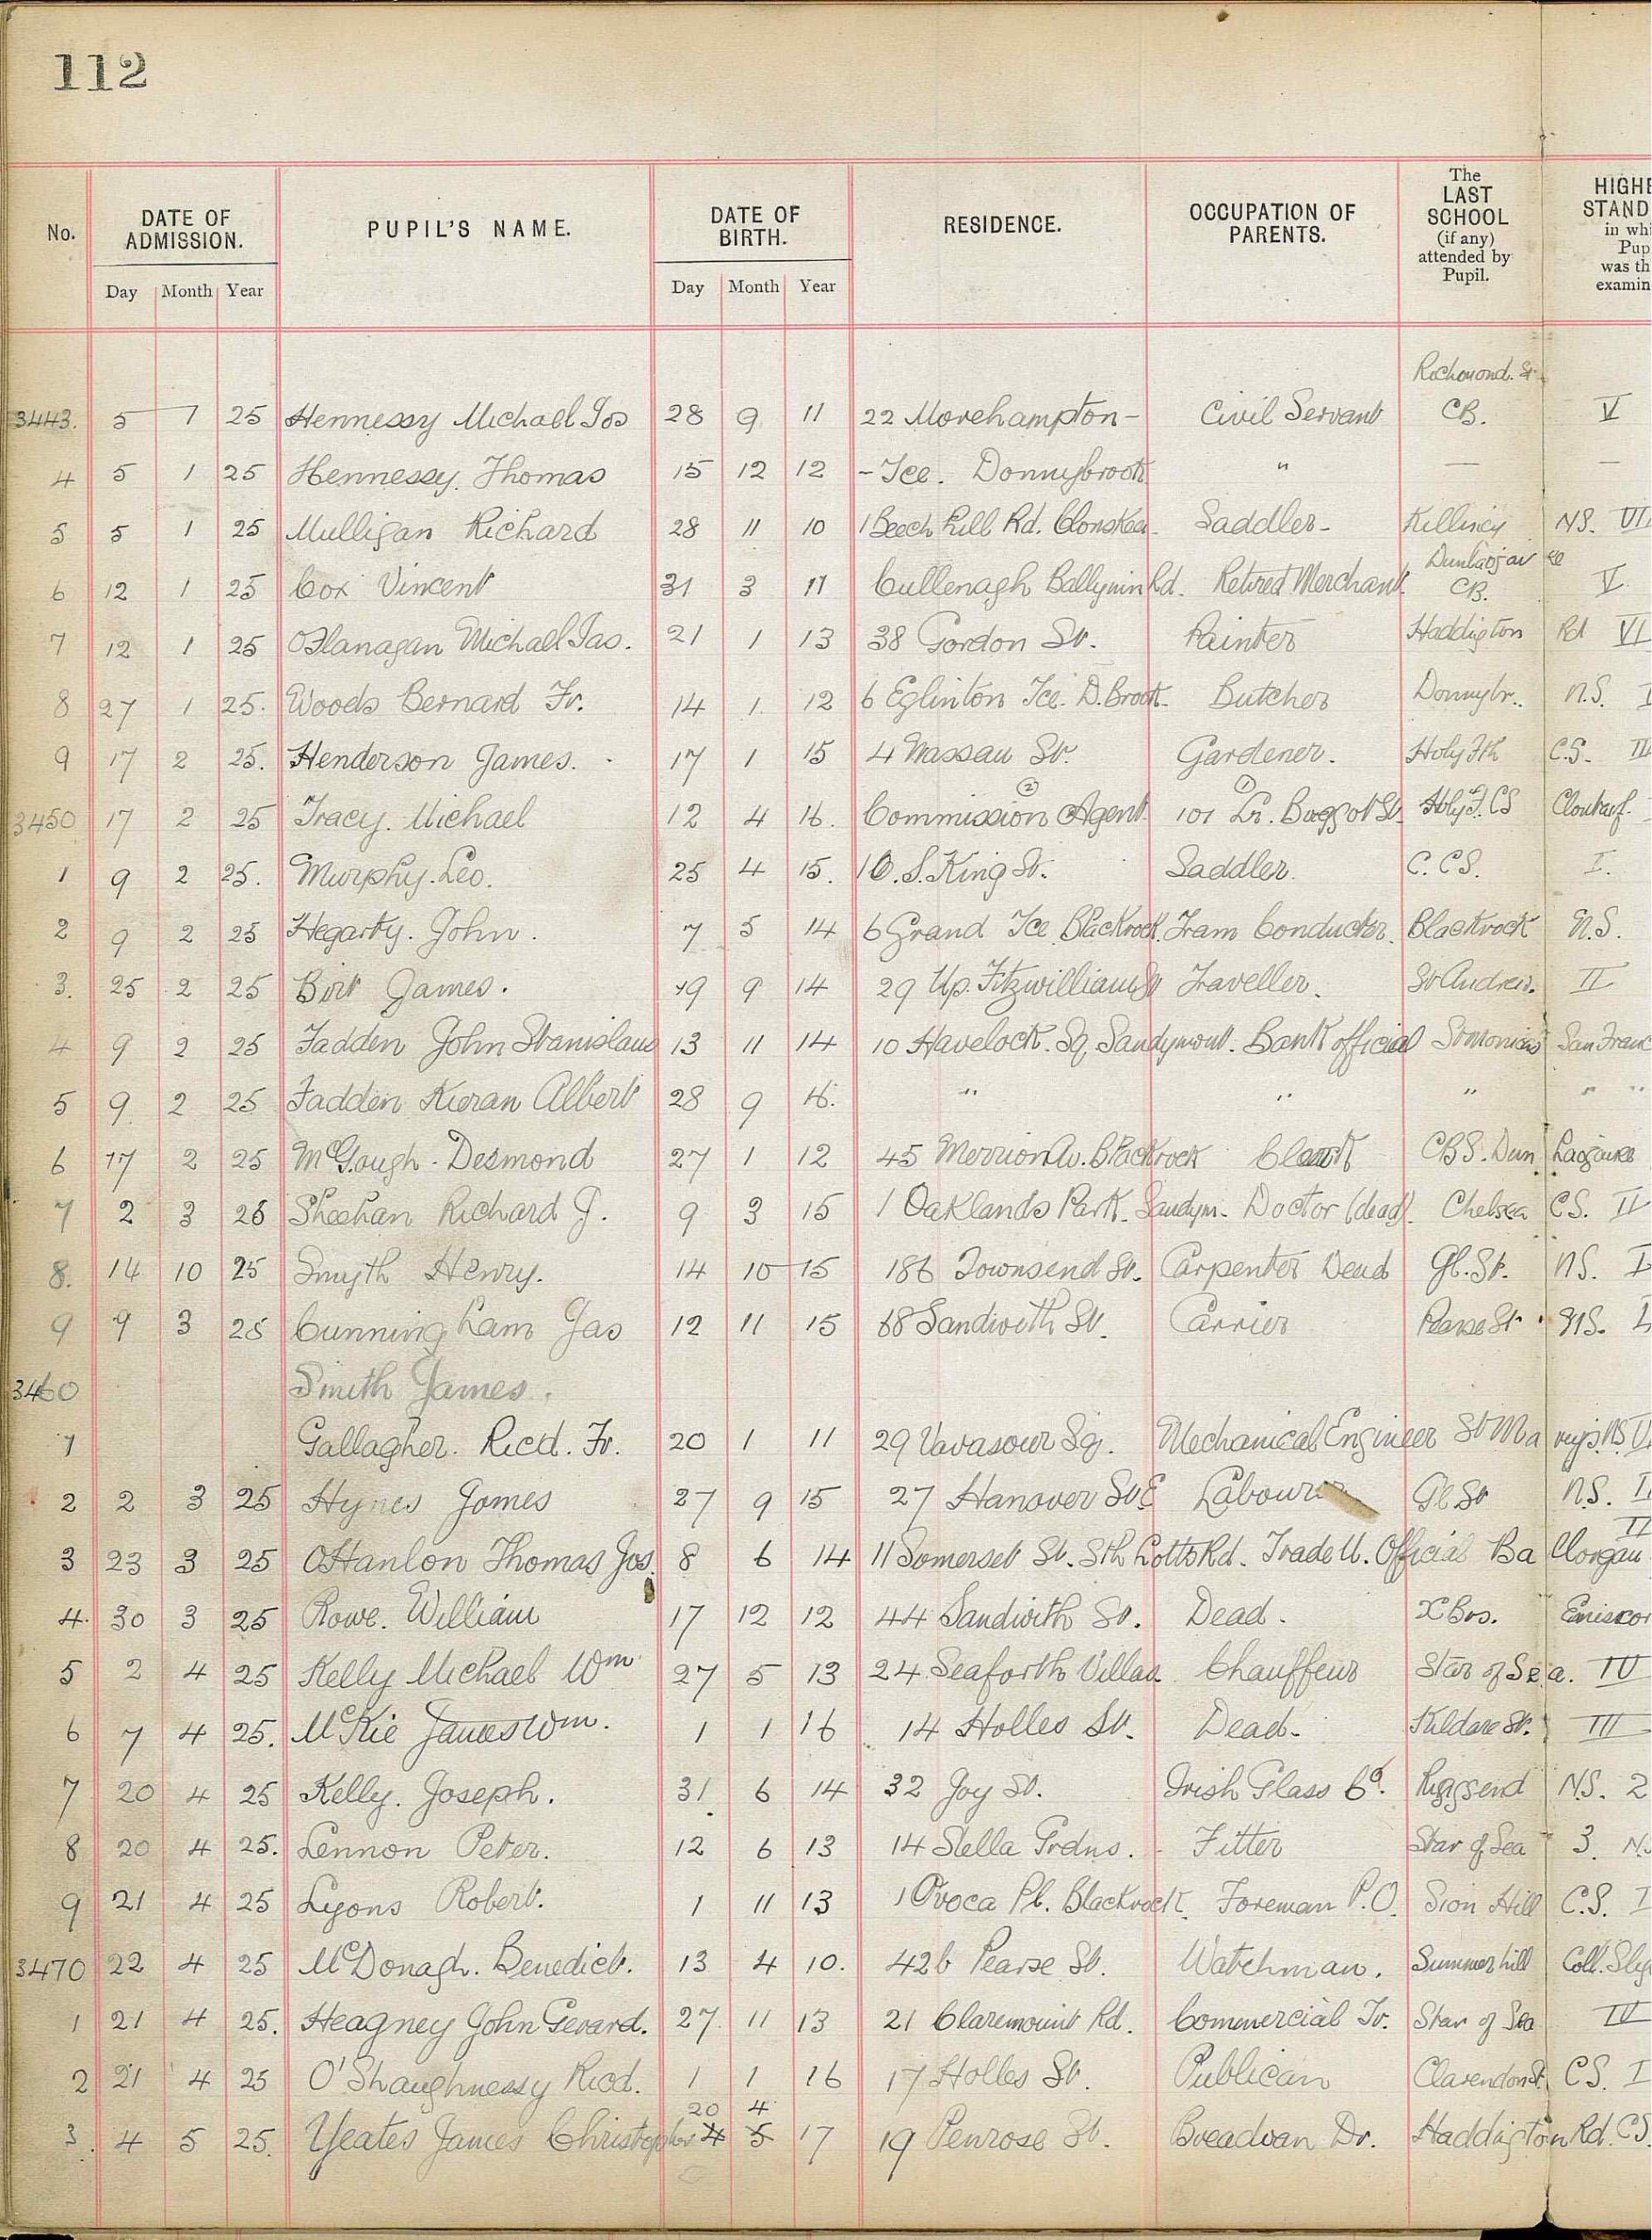 112
No. DATE OF ADMISSION. PUPIL'S NAME. DATE OF BIRTH. RESIDENCE. OCCUPATION OF PARENTS. The LAST SCHOOL (if any) attended by Pupil. HIGHE STAND in whi Pup was th examin
Day Month Year Day Month Year
Richmond. St
3443. 5 1 25 Hennessy Michael Jos 28 9 11 22 Morehampton - Civil Servant CB. V
4 5 1 25 Hennessy. Thomas 15 12 12 - Tce. Donnybrook " — —
5 5 1 25 Mulligan Richard 28 11 10 1 Beech Hill Rd. Clonskea. Saddler - Killiney NS. VI
Dunlaojaire
6 12 1 25 Cox Vincent 31 3 11 Cullenagh Ballymin Rd. Retired Merchant. CB. V.
7 12 1 25 OFlanagan Michael Jas. 21 1 13 38 Gordon St. Painter Haddigton Rd VI
8 27 1 25. Woods Bernard Fr. 14 1. 12 6 Eglinton Tce. D. Brook. Butcher Donnybr.. N.S. I
9 17 2 25. Henderson James. 17 1 15 4 Nassau St. Gardener. Holy Fth C.S. II
② ①
3450 17 2 25 Tracy. Michael 12 4 16. Commission Agent. 101 Lr. Baggot St. Holy F. CS Clontarf.
1 9 2 25. Murphy. Leo. 25 4 15. 10. S. King St. Saddler. C. CS. I.
2 9 2 25 Hegarty. John. 7 5 14 6 Grand Tce Blackrock. Tram Conductor. Blackrock N.S.
3. 25 2 25 Birt James. 19 9 14 29 Up. Fitzwilliam St Traveller. St Andrew. II
4 9 2 25 Fadden John Stanislaus 13 11 14 10 Havelock. Sq. Sandymount. Bank official St Monicas San Franc
5 9. 2 25 Fadden Kieran Albert 28 9 16. " " " " "
6 17 2 25 McGough. Desmond 27 1 12 45 Merrion Av. Blackrock Clerk CBS. Dun Laojaire
7 2 3 25 Sheehan Richard J. 9 3 15 1 Oaklands Park. Sandym. Doctor (dead). Chelsea CS. II
8. 14 10 25 Smyth Henry. 14 10 15 186 Townsend St. Carpenter Dead Gl. St. NS. I
9 9 3 25 Cunningham Jas 12 11 15 68 Sandwith St. Carrier Pearse St. NS. I
3460 Smith James.
1 Gallagher. Ricd. Fr. 20 1 11 29 Vavasour Sq. Mechanical Engineer St Marys. NS V
2 2 3 25 Hynes James 27 9 15 27 Hanover St E Labourer Gl St N.S. I
II
3 23 3 25 OHanlon Thomas Jos. 8 6 14 11 Somerset St. Sth Lotts Rd. Trade U. Official Ba llorgan
4. 30 3 25 Rowe. William 17 12 12 44 Sandwith St. Dead. X Bros. Eniscor
5 2 4 25 Kelly Michael Wm 27 5 13 24 Seaforth Villas Chauffeur Star of Sea. IV
6 7 4 25. McKie James Wm. 1 1 16 14 Holles St. Dead. Kildare St. III
7 20 4 25 Kelly. Joseph. 31 6 14 32 Joy St. Irish Glass Co. Ringsend N.S. 2
8 20 4 25. Lennon Peter. 12 6 13 14 Stella Grdns. Fitter Star of Sea 3 N.S
9 21 4 25 Lyons Robert. 1 11 13 1 Ovoca Pl. Blackrock. Foreman P.O. Sion Hill C.S. I
3470 22 4 25 McDonagh. Benedict. 13 4 10. 42b Pearse St. Watchman. Summerhill Coll. Slig
1 21 4 25. Heagney John Gerard. 27. 11 13 21 Claremount Rd. Commercial Tr. Star of Sea IV
2 21 4 25 O'Shaughnessy Ricd. 1 1 16 17 Holles St. Publican Clarendon St. CS. I
20 4
3. 4 5 25. Yeates James Christopher 4 5 17 19 Penrose St. Breadvan Dr. Haddigton Rd. CS